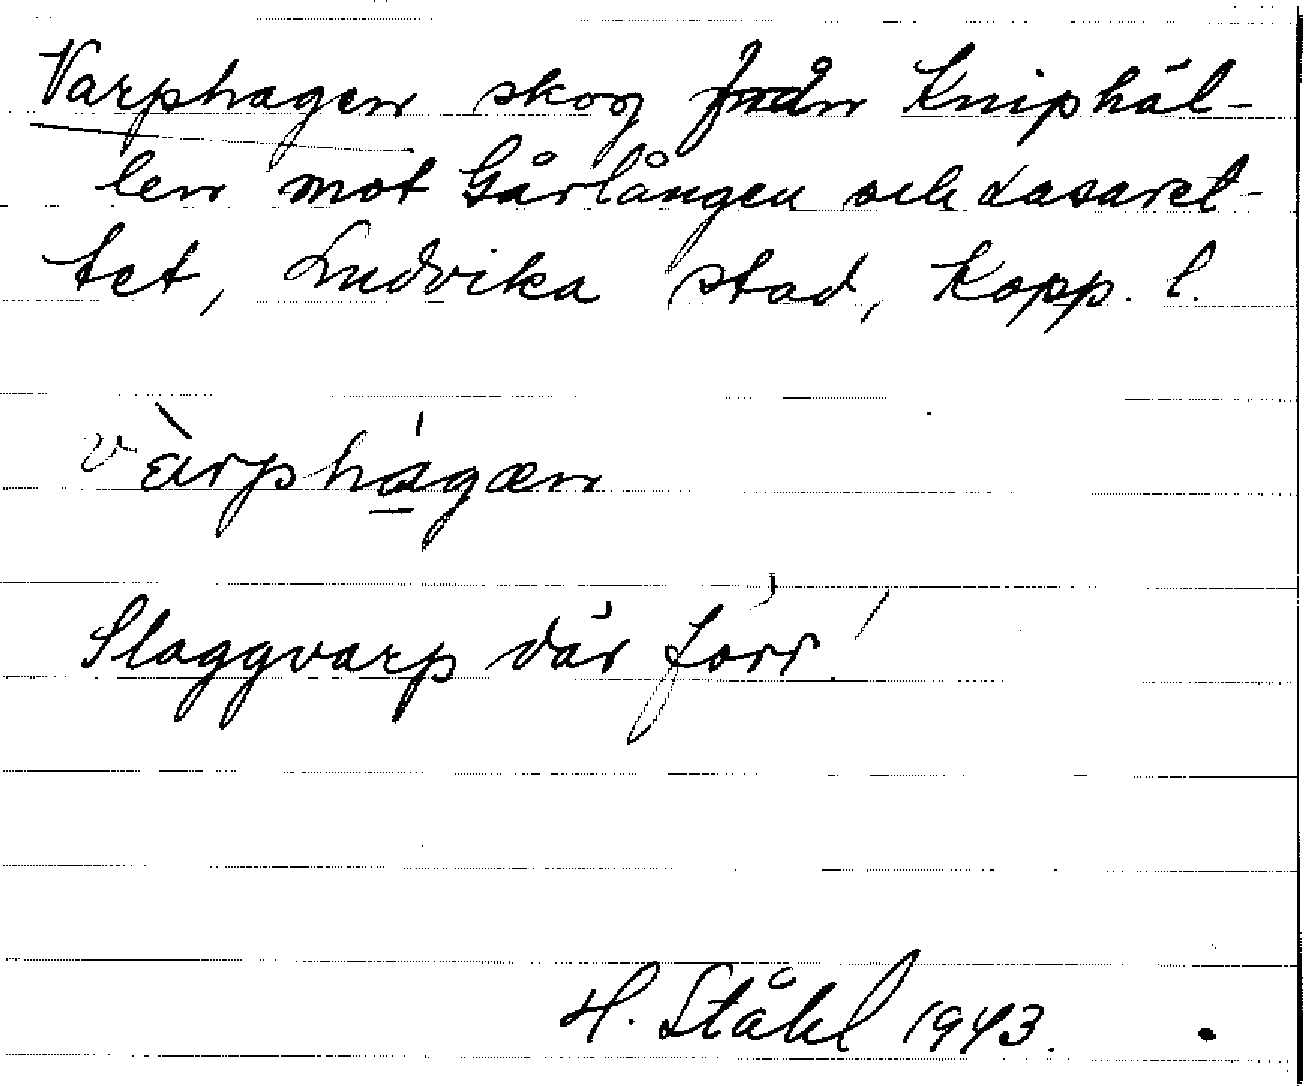 Varphagen skog från Kniphäl-
len mot Gårlången och Lasaret-
tet, Ludvika stad, Kopp. l.
vàrphágæn
Slaggvarp där förr!
H. Ståhl 1943.